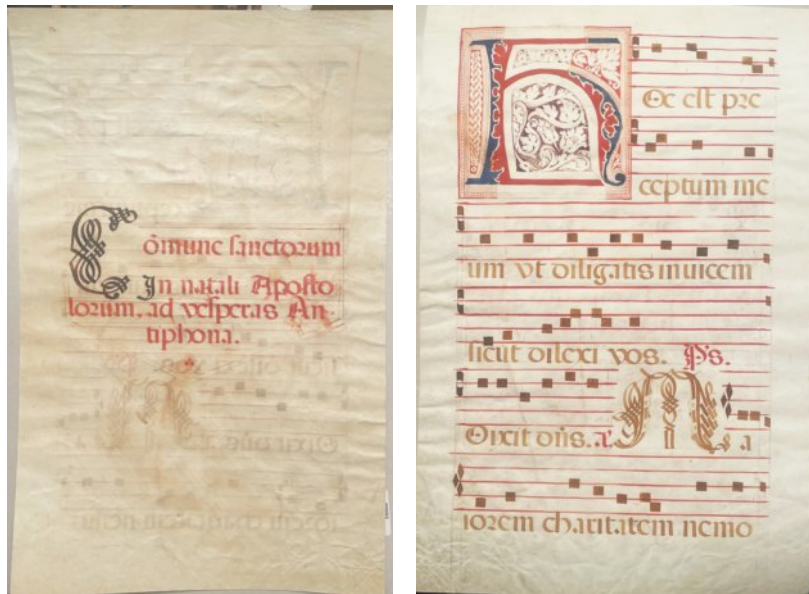 Cōmune sanctorum
In natali Aposto
lorum. ad vesperas An-
tiphona.
Hoc est pre
ceptum me
um vt diligatis inuicem
sicut dilexi vos. Ps.
Dixit dn̄s. a' Ma
iorem charitatem nemo